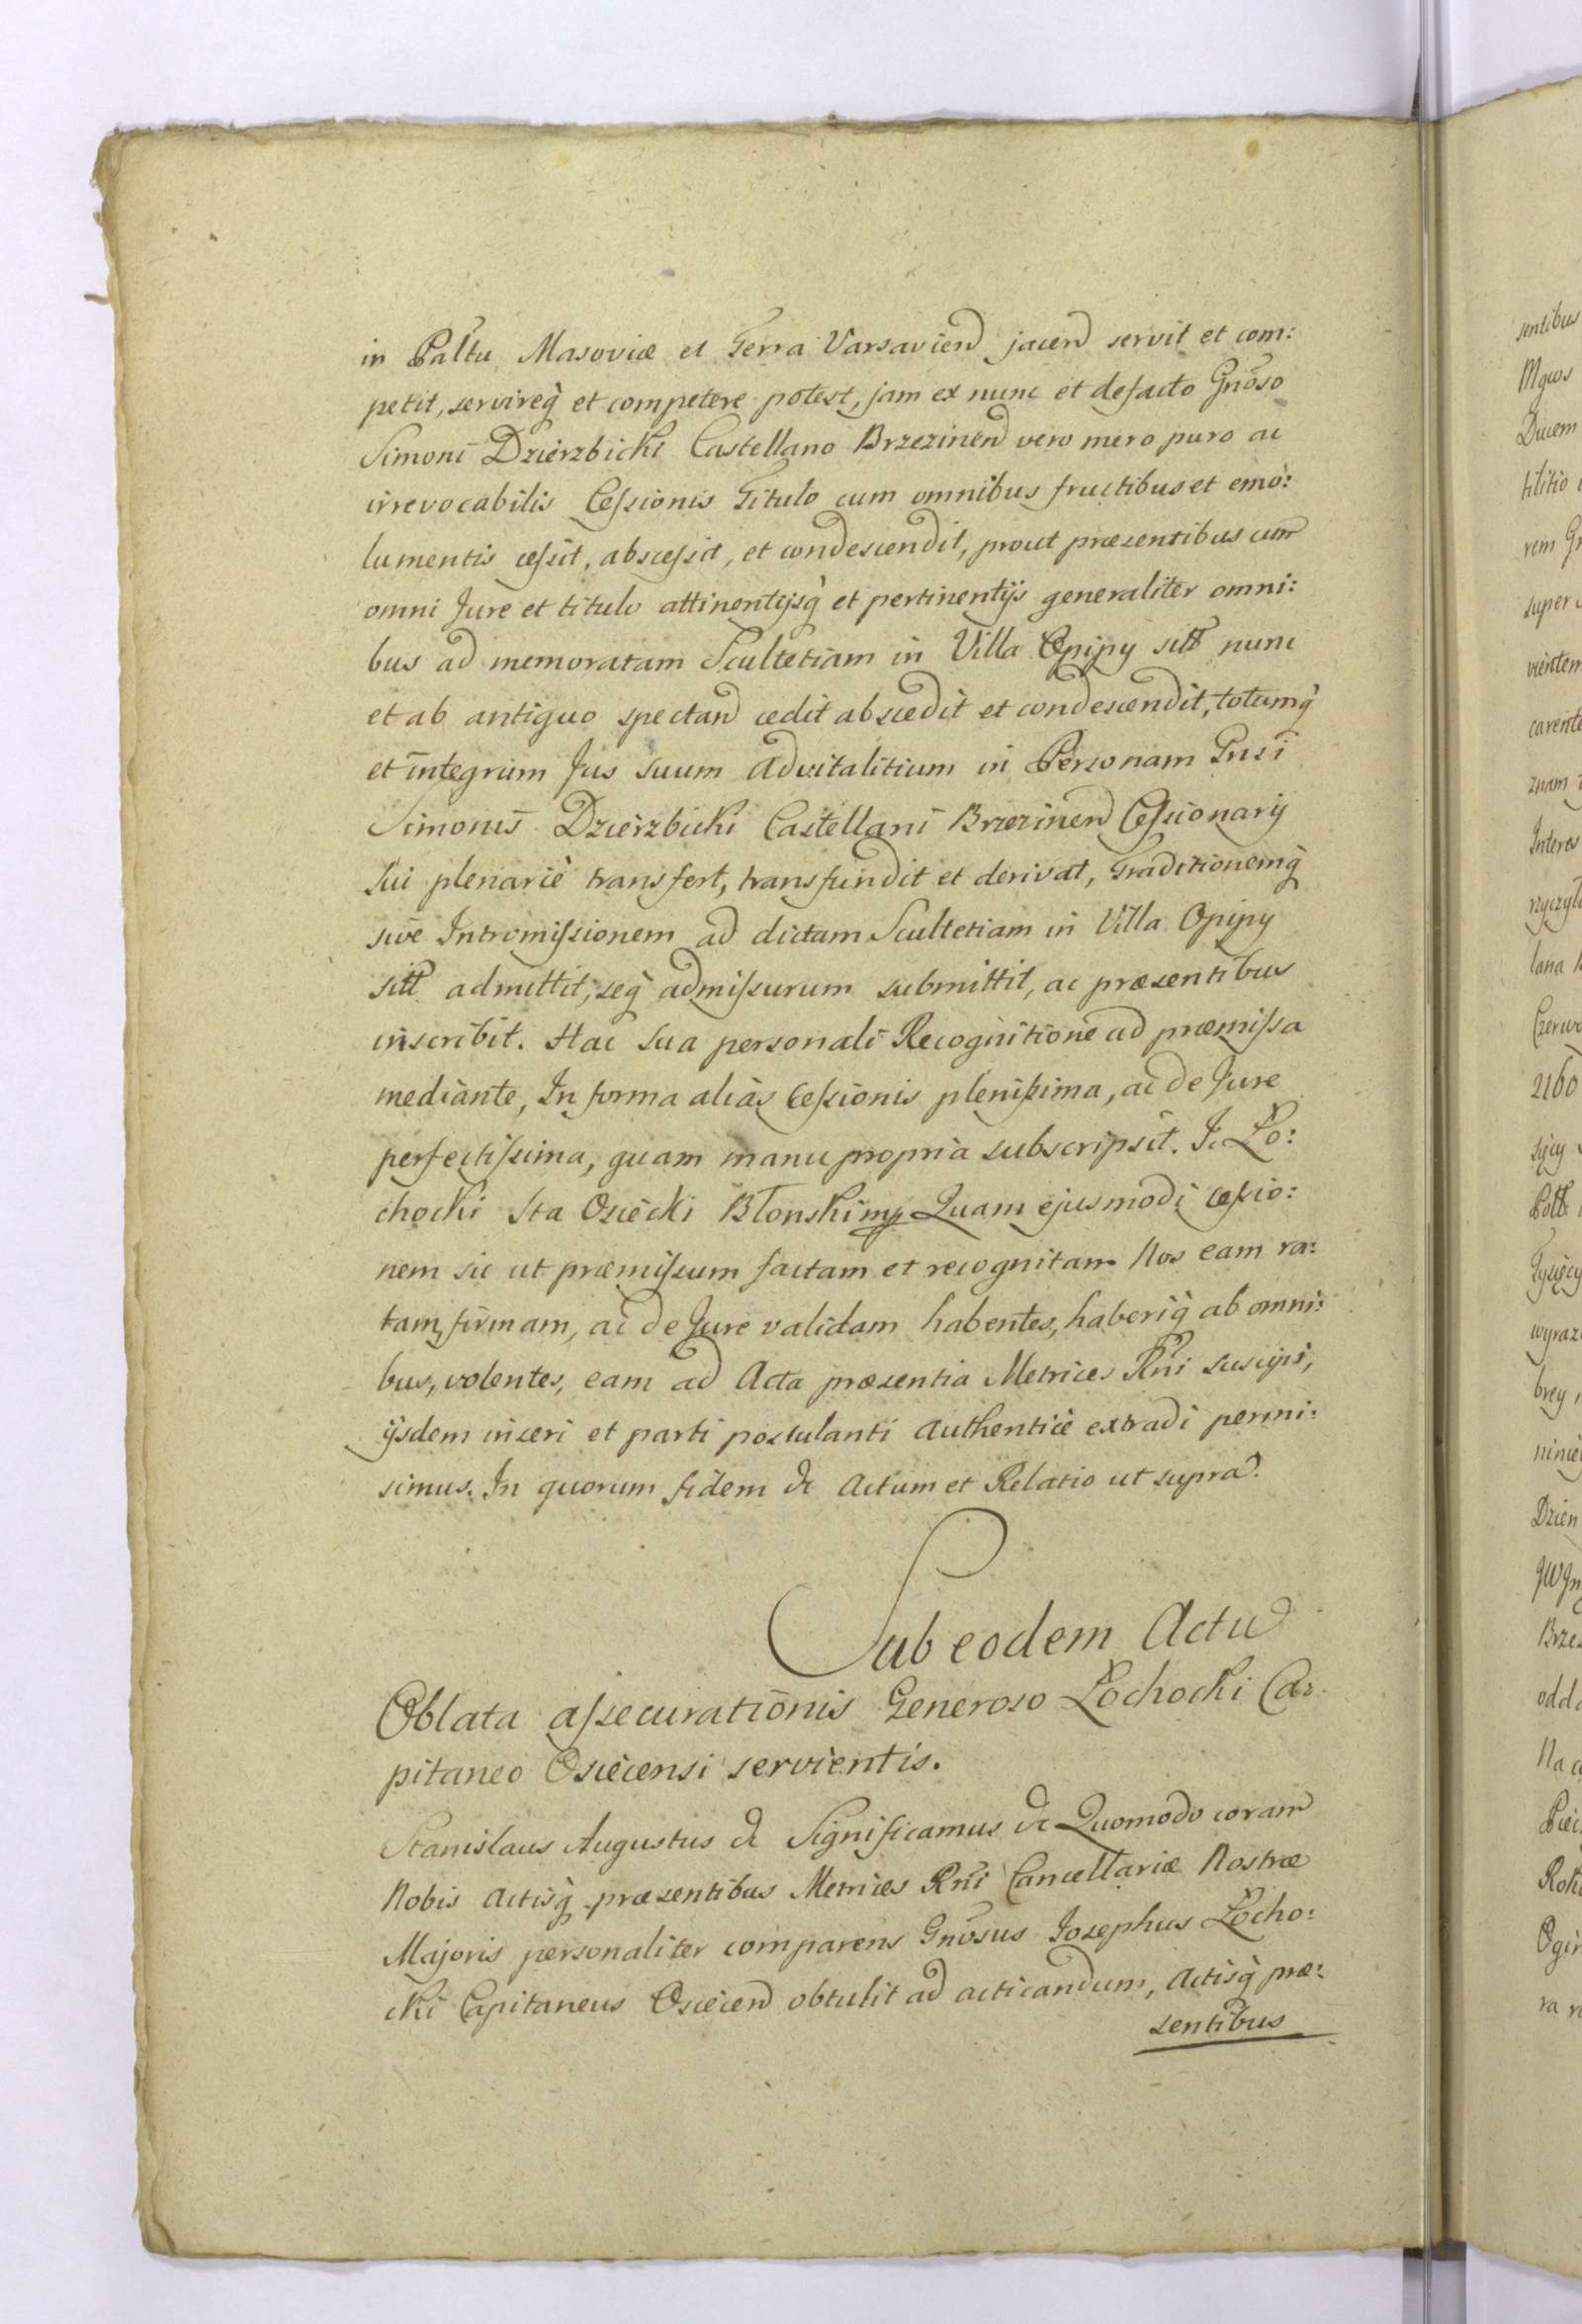 in Paltu Masoviæ et Terra Varsavien jacen servit et com:
petit, servireq̃ et competere potest, jam ex nunc et defacto Gnoso
Simoni Dzierzbicki Castellano Brzezinen vero mero puro ac
irrevocabilis Cessionis Titulo cum omnibus fructibus et emo:
lumentis cessit, abscessit, et condescendit, prout præsentibus cum
omni Jure et titulo attinentijsq̃ et pertinentijs generaliter omni:
bus ad memoratam Scultetiam in Villa Opipy sitt nunc
et ab antiquo spectan cedit abscedit et condescendit, totumq̃
et integrum Jus suum advitalitium in Personam Gnsi
Simonis Dzierzbicki Castellani Brzezinen Cessionarij
sui plenarie transfert, transfundit et derivat, Traditionemq̃
sive Intromissionem ad dictam Scultetiam in Villa Opipy
sitt admittit, seq̃ admissurum submittit, ac præsentibus
inscribit. Hac sua personali Recognitione ad præmissa
mediante, In forma alias Cessionis plenissima, ac de Jure
perfectissima, quam manu propria subscripsit. J. Ło:
chocki Sta Osiecki Błonski mp Quam ejusmodi cessio:
nem sic ut præmissum factam et recognitam Nos eam ra:
tam, firmam, ac de Jure validam habentes, haberiq̃ ab omni:
bus, volentes, eam ad Acta præsentia Metrices Rni suscipi,
ijsdem inseri et parti postulanti authentice extradi permi:
simus. In quorum fidem &c Actum et Relatio ut supra.
Sub eodem Actu
Oblata assecurationis Generoso Łochocki Ca:
pitaneo Osiecensi servientis.
Stanislaus Augustus &c Significamus &c Quomodo coram
Nobis actisq̃ præsentibus Metrices Rni Cancellariæ Nostræ
Majoris personaliter comparens Gnosus Josephus Łocho:
cki Capitaneus Osiecen obtulit ad acticandum, Actisq̃ præ:
sentibus